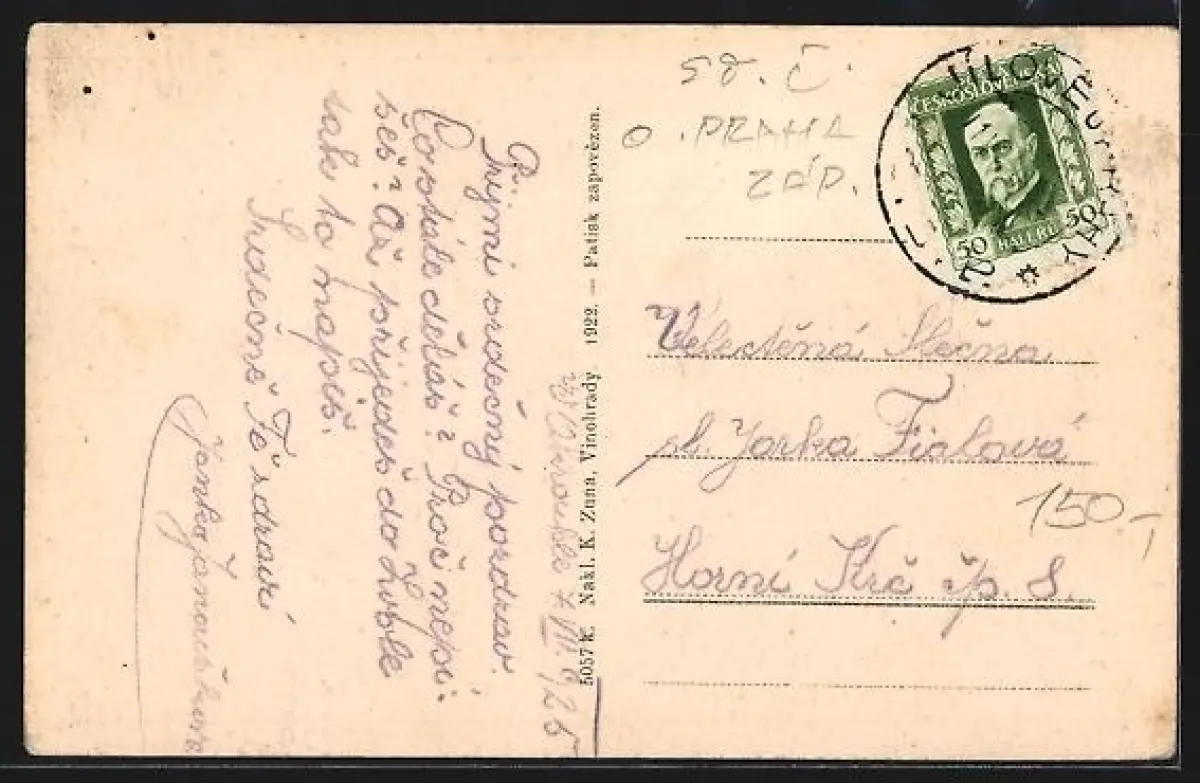 P.
Přijmi srdečný pozdrav.
Co stále děláš? Proč nepí-
šeš? Až přijedeš do Zvole
tak to napiš.
Srdečně Tě zdraví
Janka
7. VII. 925
5057 K. Nakl. K. Zuna, Vinohrady 1922. — Patisk zapovězen.
Č.
O. PRAHA
ZÁP.
ČESKOSLOVENSKÁ
50 HALÉŘŮ 50
Velectěná Slečna
sl. Jarka Fialová
150,-
Horní Krč čp. 8.